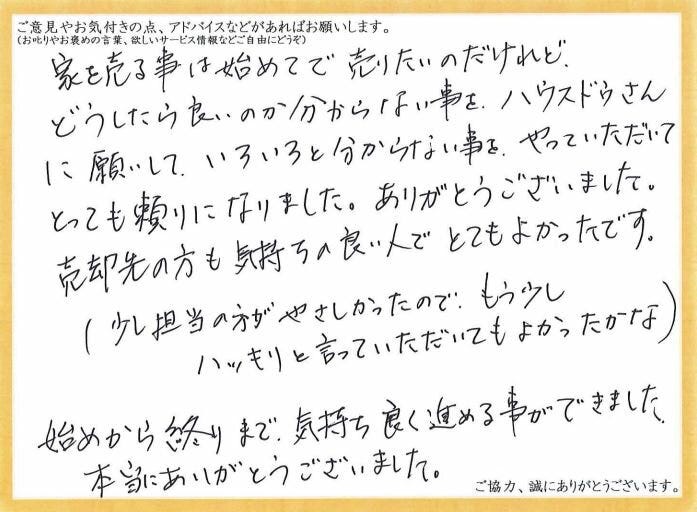 ご意見やお気付きの点、アドバイスなどがあればお願いします。
(お叱りやお褒めの言葉、欲しいサービス情報などご自由にどうぞ)
家を売る事は始めてで 売りたいのだけれど、
どうしたら良いのか分からない事を、ハウスドゥさん
に願いして、いろいろと分からない事を、やっていただいて
とっても頼りになりました。ありがとうございました。
売却先の方も気持ちの良い人で とてもよかったです。
(少し担当の方がやさしかったので、もう少し
ハッキリと言っていただいてもよかったかな)
始めから終りまで、気持ち良く進める事ができました、
本当にありがとうございました。
ご協力、誠にありがとうございます。